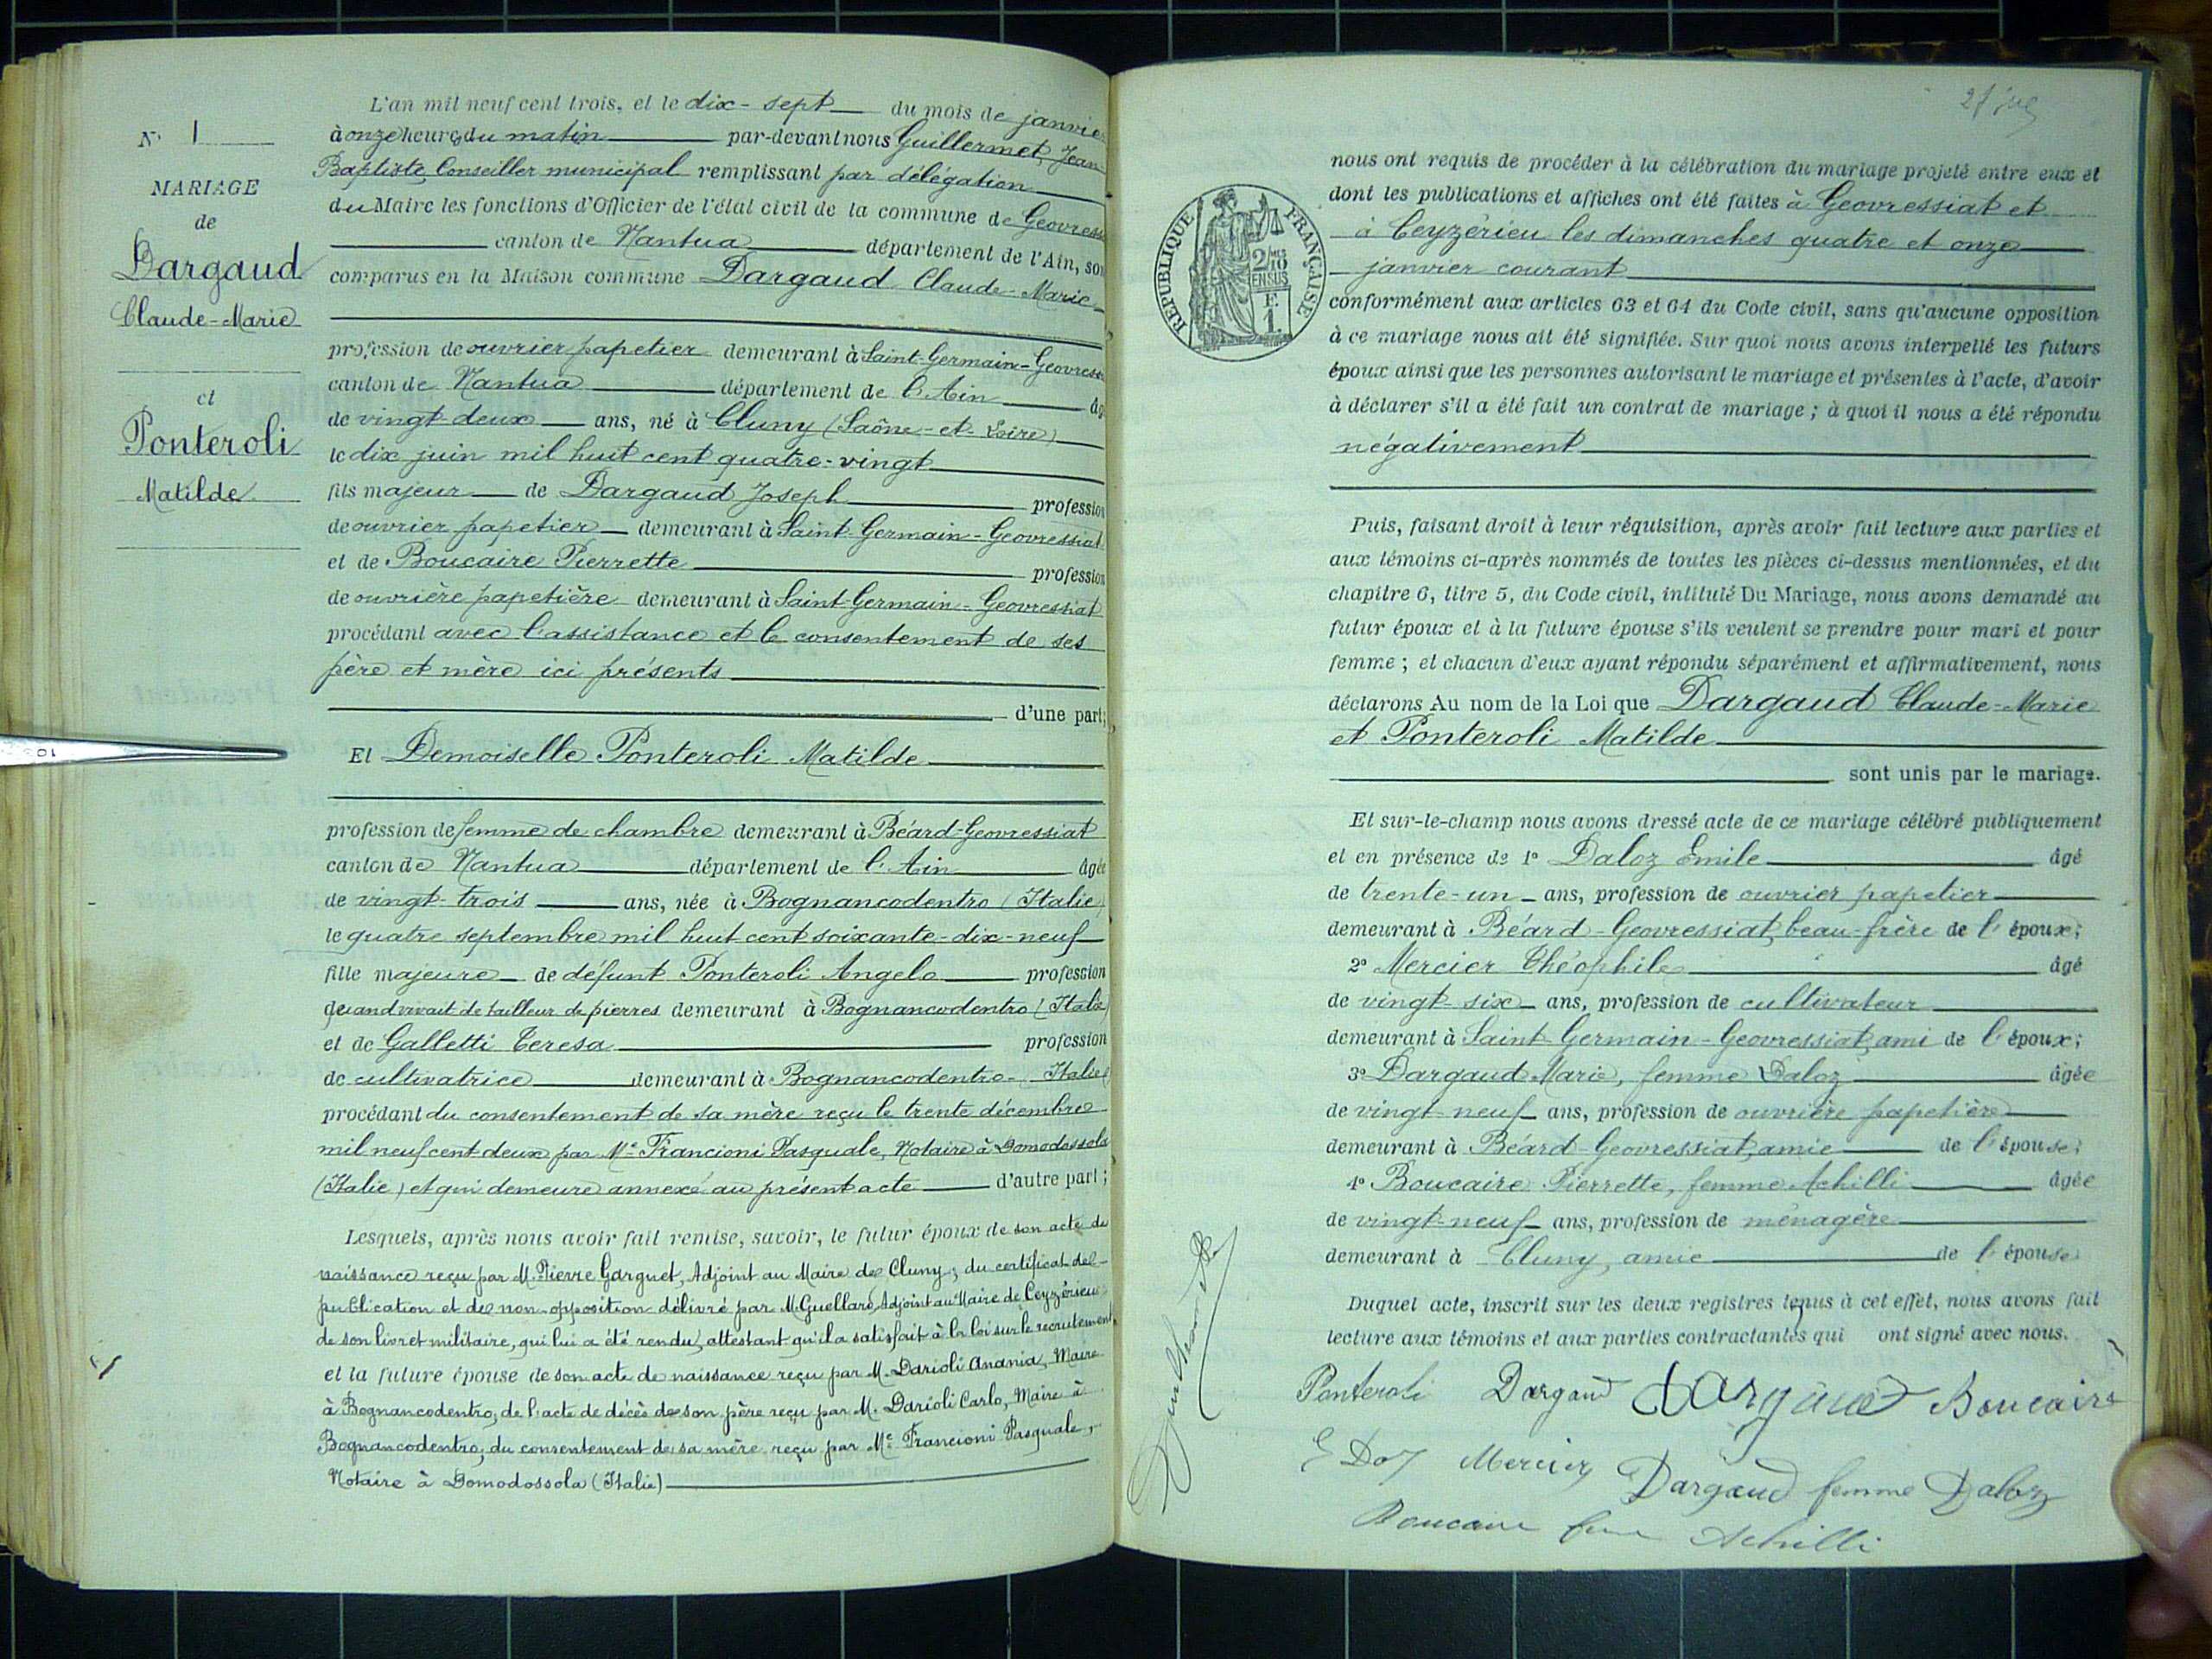 N° 1
MARIAGE
de
Dargaud
Claude-Marie
et
Ponteroli
Matilde
L'an mil neuf cent trois, et le dix-sept du mois de janvie
à onze heures du matin par-devant nous Guillermet, Jean
Baptiste Conseiller municipal remplissant par délégation
du Maire les fonctions d'Officier de l'état civil de la commune de Geovress
canton de Nantua département de l'Ain, son
comparus en la Maison commune Dargaud Claude-Marie
profession de ouvrier papetier demeurant à Saint-Germain-Geovress
canton de Nantua département de l'Ain âg
de vingt-deux ans, né à Cluny (Saône-et-Loire)
le dix juin mil huit cent quatre-vingt
fils majeur de Dargaud Joseph profession
de ouvrier papetier demeurant à Saint-Germain-Geovressiat
et de Boucaire Pierrette profession
de ouvrière papetière demeurant à Saint-Germain-Geovressiat
procédant avec l'assistance et le consentement de ses
père et mère ici présents
d'une part;
Et Demoiselle Ponteroli Matilde
profession de femme de chambre demeurant à Béard-Geovressiat
canton de Nantua département de l'Ain âgée
de vingt-trois ans, née à Bognancodentro (Italie)
le quatre septembre mil huit cent soixante-dix-neuf
fille majeure de défunt Ponteroli Angelo profession
quand vivait de tailleur de pierres demeurant à Bognancodentro (Italie)
et de Galletti Teresa profession
de cultivatrice demeurant à Bognancodentro - Italie(
procédant du consentement de sa mère reçu le trente décembre
mil neuf cent deux par Me Francioni Pasquale, Notaire à Domodossola
(Italie) et qui demeure annexé au présent acte d'autre part;
Lesquels, après nous avoir fait remise, savoir, le futur époux de son acte de
naissance reçu par M. Pierre Garguet, Adjoint au Maire de Cluny; du certificat de
publication et de non-opposition délivré par M. Guellard, Adjoint au Maire de Ceyzérieu
de son livret militaire, qui lui a été rendu, attestant qu'il a satisfait à la loi sur le recrutement,
et la future épouse de son acte de naissance reçu par M. Darioli Anania, Maire
à Bognancodentro, de l'acte de décès de son père reçu par M. Darioli Carlo, Maire à
Bognancodentro, du consentement de sa mère reçu par Me Francioni Pasquale,
Notaire à Domodossola (Italie)
RÉPUBLIQUE FRANÇAISE
2/10 MES
EN SUS
F.
1.
nous ont requis de procéder à la célébration du mariage projeté entre eux et
dont les publications et affiches ont été faites à Geovressiat et
à Ceyzérieu les dimanches quatre et onze
janvier courant
conformément aux articles 63 et 64 du Code civil, sans qu'aucune opposition
à ce mariage nous ait été signifiée. Sur quoi nous avons interpellé les futurs
époux ainsi que les personnes autorisant le mariage et présentes à l'acte, d'avoir
à déclarer s'il a été fait un contrat de mariage; à quoi il nous a été répondu
négativement
Puis, faisant droit à leur réquisition, après avoir fait lecture aux parties et
aux témoins ci-après nommés de toutes les pièces ci-dessus mentionnées, et du
chapitre 6, titre 5, du Code civil, intitulé Du Mariage, nous avons demandé au
futur époux et à la future épouse s'ils veulent se prendre pour mari et pour
femme; et chacun d'eux ayant répondu séparément et affirmativement, nous
déclarons Au nom de la Loi que Dargaud Claude-Marie
et Ponteroli Matilde
sont unis par le mariage.
Et sur-le-champ nous avons dressé acte de ce mariage célébré publiquement
et en présence de 1° Daloz Émile âgé
de trente-un ans, profession de ouvrier papetier
demeurant à Béard-Geovressiat, beau-frère de l'époux;
2° Mercier Théophile âgé
de vingt-six ans, profession de cultivateur
demeurant à Saint-Germain-Geovressiat, ami de l'époux;
3° Dargaud Marie, femme Daloz âgée
de vingt-neuf ans, profession de ouvrière papetière
demeurant à Béard-Geovressiat, amie de l'épouse;
4° Boucaire Pierrette, femme Achilli âgée
de vingt-neuf ans, profession de ménagère
demeurant à Cluny, amie de l'épouse
Duquel acte, inscrit sur les deux registres tenus à cet effet, nous avons fait
lecture aux témoins et aux parties contractantes qui ont signé avec nous.
Ponteroli Dargaud Dargaud Boucaire
Mercier Dargaud femme Daloz
Boucaire Achilli